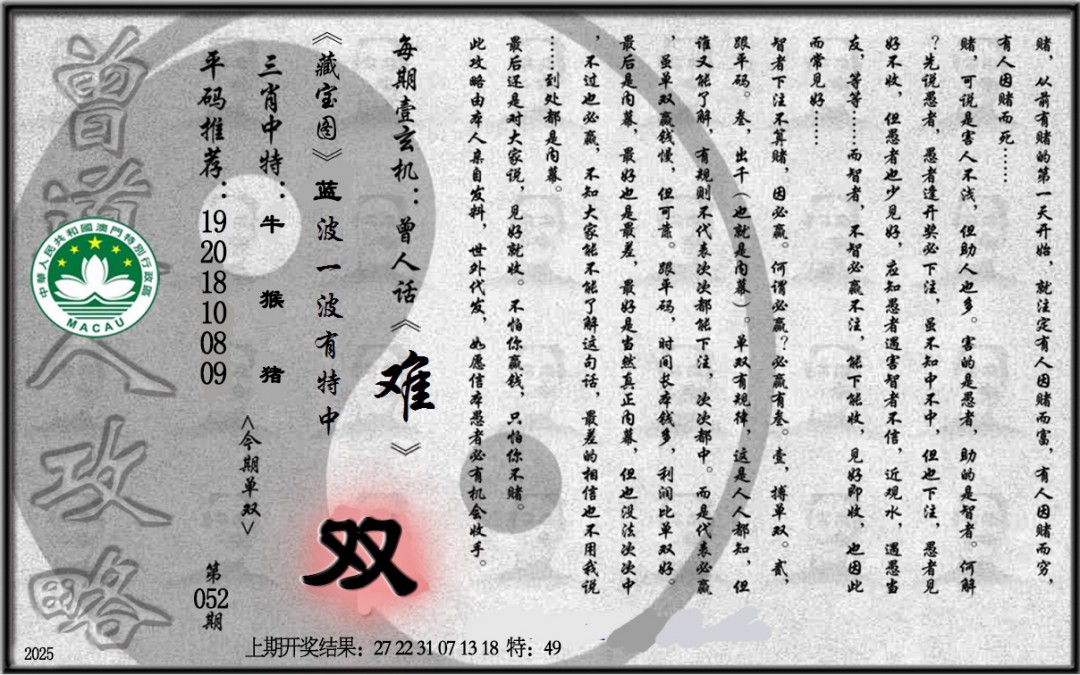 赌，从前有赌的第一天开始，就注定有人因赌而富，有人因赌而穷，
有人因赌而死……
赌，可说是害人不浅，但助人也多。害的是愚者，助的是智者。何解
？先说愚者，愚者逢开奖必下注，虽不知中不中，但也下注，愚者见
好不收，但愚者也少见好，应知愚者遇害智者不信，近观水，遇愚当
友，等等……而智者，不智必赢不注，能下能收，见好即收，也因此
而常见好……
智者下注不算赌，因必赢。何谓必赢？必赢有叁。壹，搏单双。贰，
跟平码。叁，出千（也就是内幕）。单双有规律，这是人人都知，但
谁又能了解，有规则不代表次次都能下注，次次都中。而是代表必赢
，虽单双赢钱慢，但可靠。跟平码，时间长本钱多，利润比单双好。
最后是内幕，最好也是最差，最好是当然真正内幕，但也没法次次中
，不过也必赢，不知大家能不能了解这句话，最差的相信也不用我说
……到处都是内幕。
最后还是对大家说，见好就收。不怕你赢钱，只怕你不赌。
此攻略由本人亲自发料，世外代发，如愿信本愚者必有机会收手。
每期壹玄机：曾人话《难》
《藏宝图》蓝波一波有特中
三肖中特：牛 猴 猪
<今期单双>
双
平码推荐：19 20 18 10 08 09
第052期
曾道人攻略
中華人民共和國澳門特別行政區
MACAU
2025
上期开奖结果：27 22 31 07 13 18 特：49